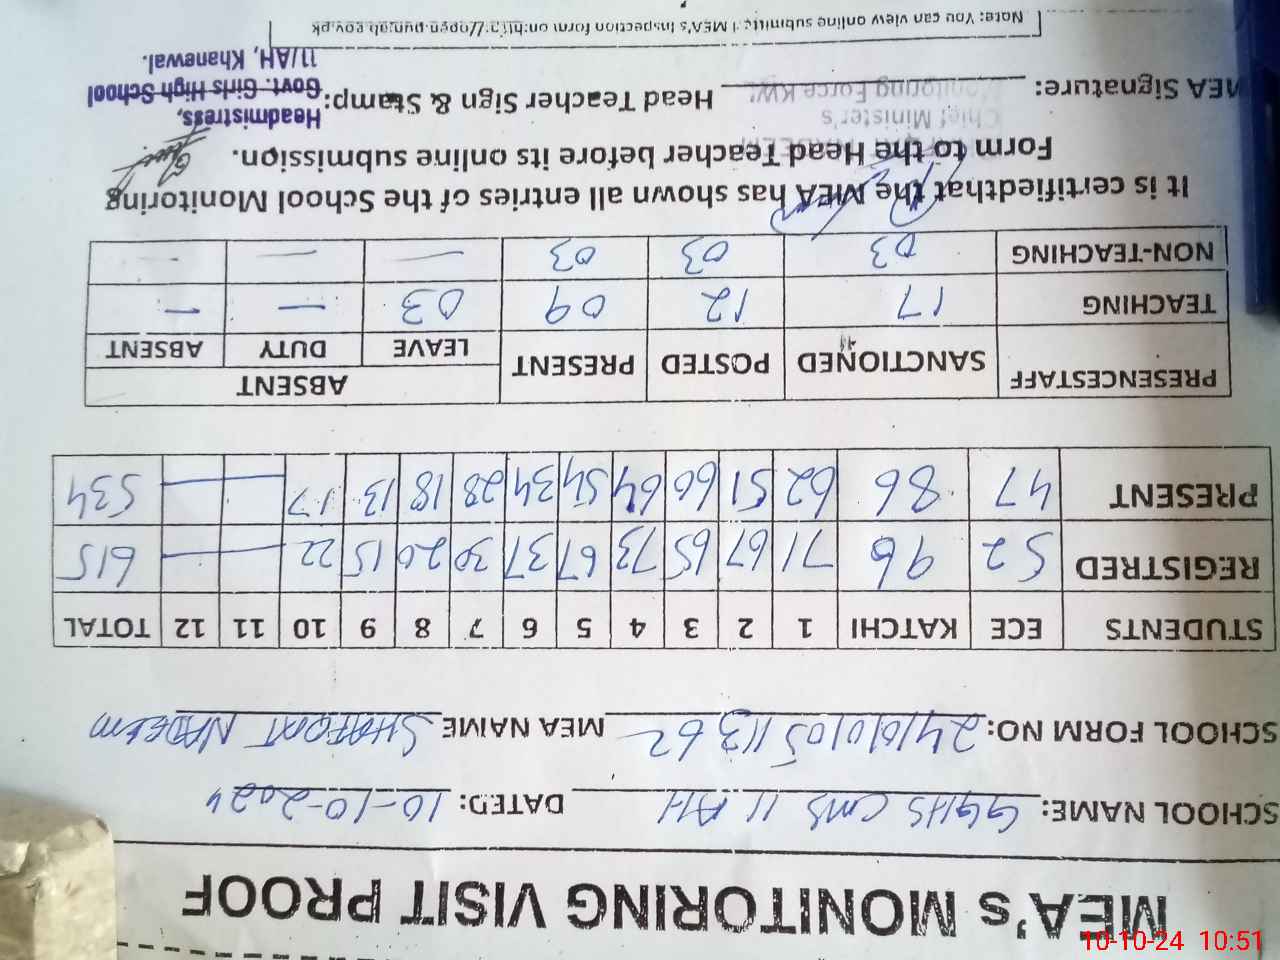 MEA's MONITORING VISIT PROOF
SCHOOL NAME: GGHS CMS 11 AH DATED: 10-10-2024
SCHOOL FORM NO: MEA NAME SHAFQAT NADEEM
STUDENTS ECE KATCHI 1 2 3 4 5 6 7 8 9 10 11 12 TOTAL
REGISTRED 52 96 71 67 65 73 67 37 30 20 15 22 — — 615
PRESENT 47 86 62 51 60 64 54 34 28 18 13 17 — — 534
PRESENCESTAFF SANCTIONED POSTED PRESENT ABSENT
LEAVE DUTY ABSENT
TEACHING 17 12 09 03 — —
NON-TEACHING 03 03 03 — — —
It is certifiedthat the MEA has shown all entries of the School Monitoring
Form to the Head Teacher before its online submission.
Chief Minister's
Monitoring Force KWL
MEA Signature: Head Teacher Sign & Stamp:
Headmistress,
Govt. Girls High School
11/AH, Khanewal.
Note: You can view online submitted MEA's inspection form on:http://open.punjab.gov.pk
10-10-24 10:51